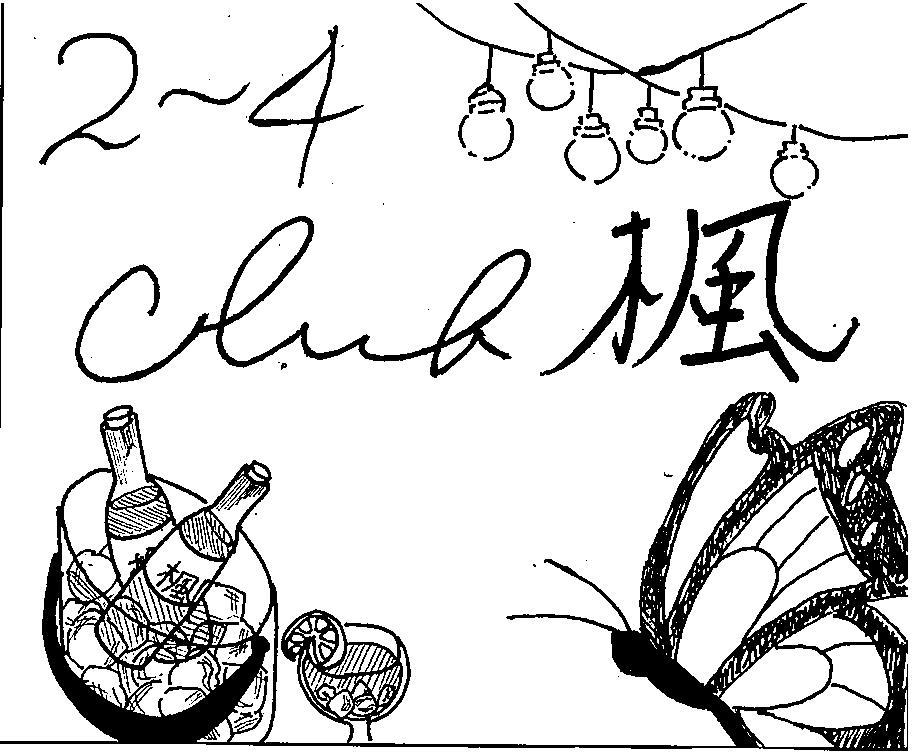 2~4
Club 楓
楓